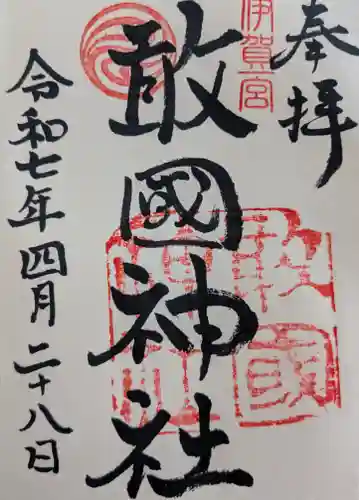 奉拝
伊賀一宮
敢國神社
令和七年四月二十八日